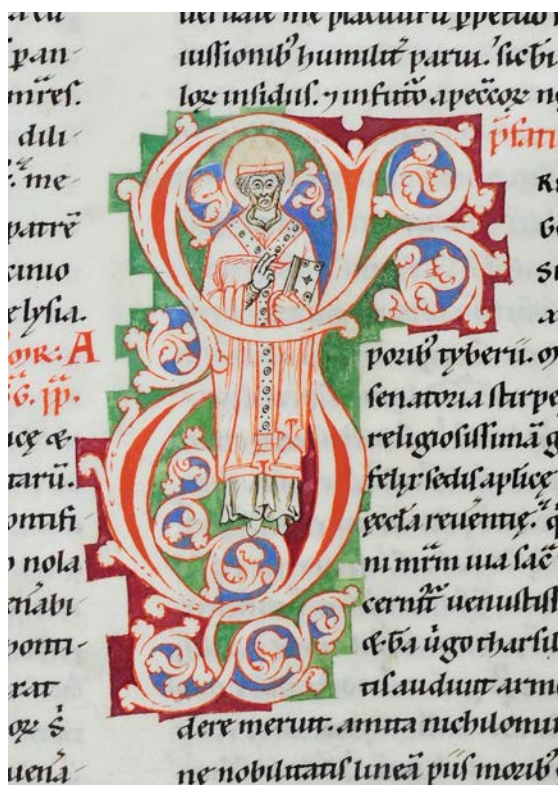 pan-
mr̄es.
dili
me
patrē
cunio
elysia.
A
icę &
tarū.
ontifi
nola
enabi
ponti-
rat
uena-
iussionibꝰ humilit̄ parui. sicbi
loꝝ insidiis. ⁊ infutō apeccoꝝ
p̄fati
poribꝰ tyberii.
senatoria stirpe
religiosissimā g
felix sedis aplicę
ęccła reuentię.
ni mr̄m uia sac̄
cernit̄ uenustiss
& b̄a ūgo tharsil
tis audiuit arm
dere meruit. amita nichilomi
ne nobilitatis lineā piis moribꝰ